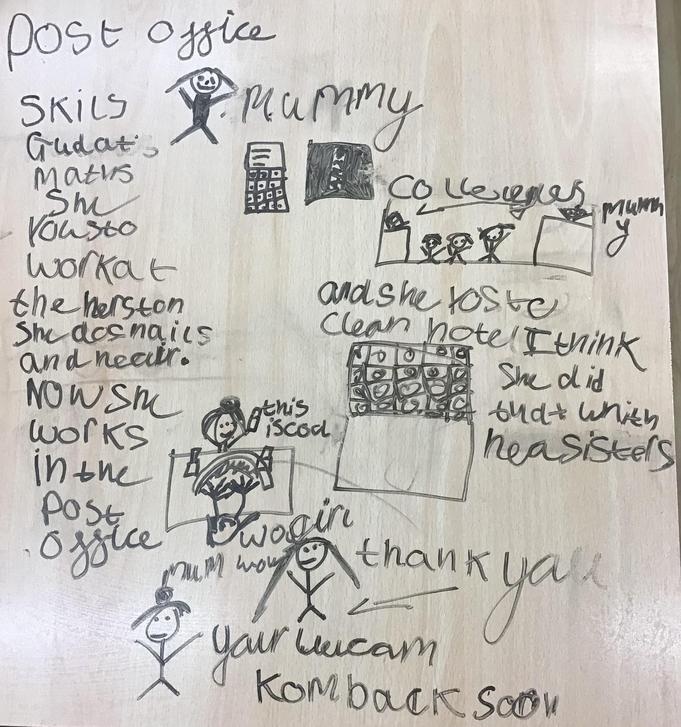 Post office
Mummy
SKILS
Gudat
maths
She
yousto
workat
the herston
She dosnails
and heair.
NOW She
works
in the
Post
office
Colleegues
mumm
y
and she yoste
clean hotel I think
She did
that whith
heasisters
this
iscool
wogirl
mum wow
thank you
your wucam
Kom back Soon